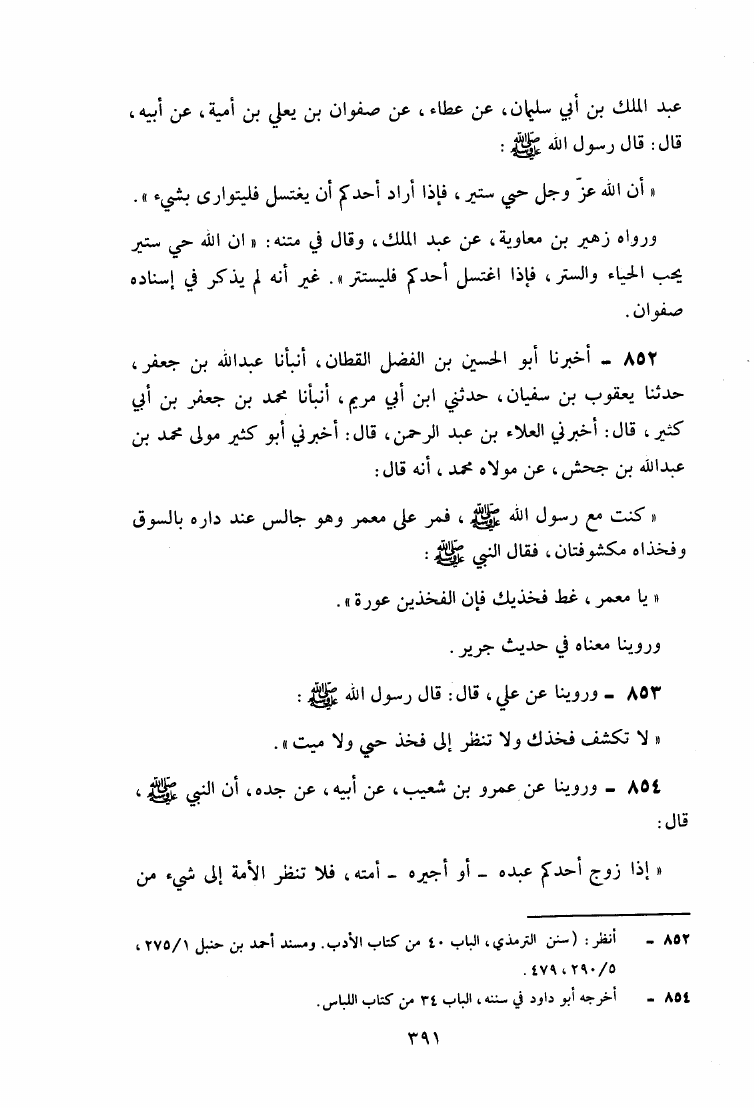 عبد الملك بن أبي سليمان، عن عطاء، عن صفوان بن يعلي بن أمية، عن أبيه،
قال: قال رسول الله ﷺ :
« أن الله عزّ وجل حي ستير، فإذا أراد أحدكم أن يغتسل فليتوارى بشيء ».
ورواه زهير بن معاوية، عن عبد الملك، وقال في متنه: « ان الله حي ستير
يحب الحياء والستر، فإذا اغتسل أحدكم فليستتر ». غير أنه لم يذكر في إسناده
صفوان.
٨٥٢ ـ أخبرنا أبو الحسين بن الفضل القطان، أنبأنا عبدالله بن جعفر،
حدثنا يعقوب بن سفيان، حدثني ابن أبي مريم، أنبأنا محمد بن جعفر بن أبي
كثير، قال: أخبرني العلاء بن عبد الرحمن، قال: أخبرني أبو كثير مولى محمد بن
عبدالله بن جحش، عن مولاه محمد، أنه قال:
« كنت مع رسول الله ﷺ ، فمر على معمر وهو جالس عند داره بالسوق
وفخذاه مكشوفتان، فقال النبي ﷺ :
« يا معمر، غط فخذيك فإن الفخذين عورة ».
وروينا معناه في حديث جرير.
٨٥٣ ـ وروينا عن علي، قال: قال رسول الله ﷺ :
« لا تكشف فخذك ولا تنظر إلى فخذ حي ولا ميت ».
٨٥٤ ـ وروينا عن عمرو بن شعيب، عن أبيه، عن جده، أن النبي ﷺ ،
قال:
« إذا زوج أحدكم عبده ـ أو أجيره ـ أمته، فلا تنظر الأمة إلى شيء من
٨٥٢ ـ أنظر: (سنن الترمذي، الباب ٤٠ من كتاب الأدب. ومسند أحمد بن حنبل ٢٧٥/١،
٢٩٠/٥، ٤٧٩.
٨٥٤ ـ أخرجه أبو داود في سننه، الباب ٣٤ من كتاب اللباس.
٣٩١